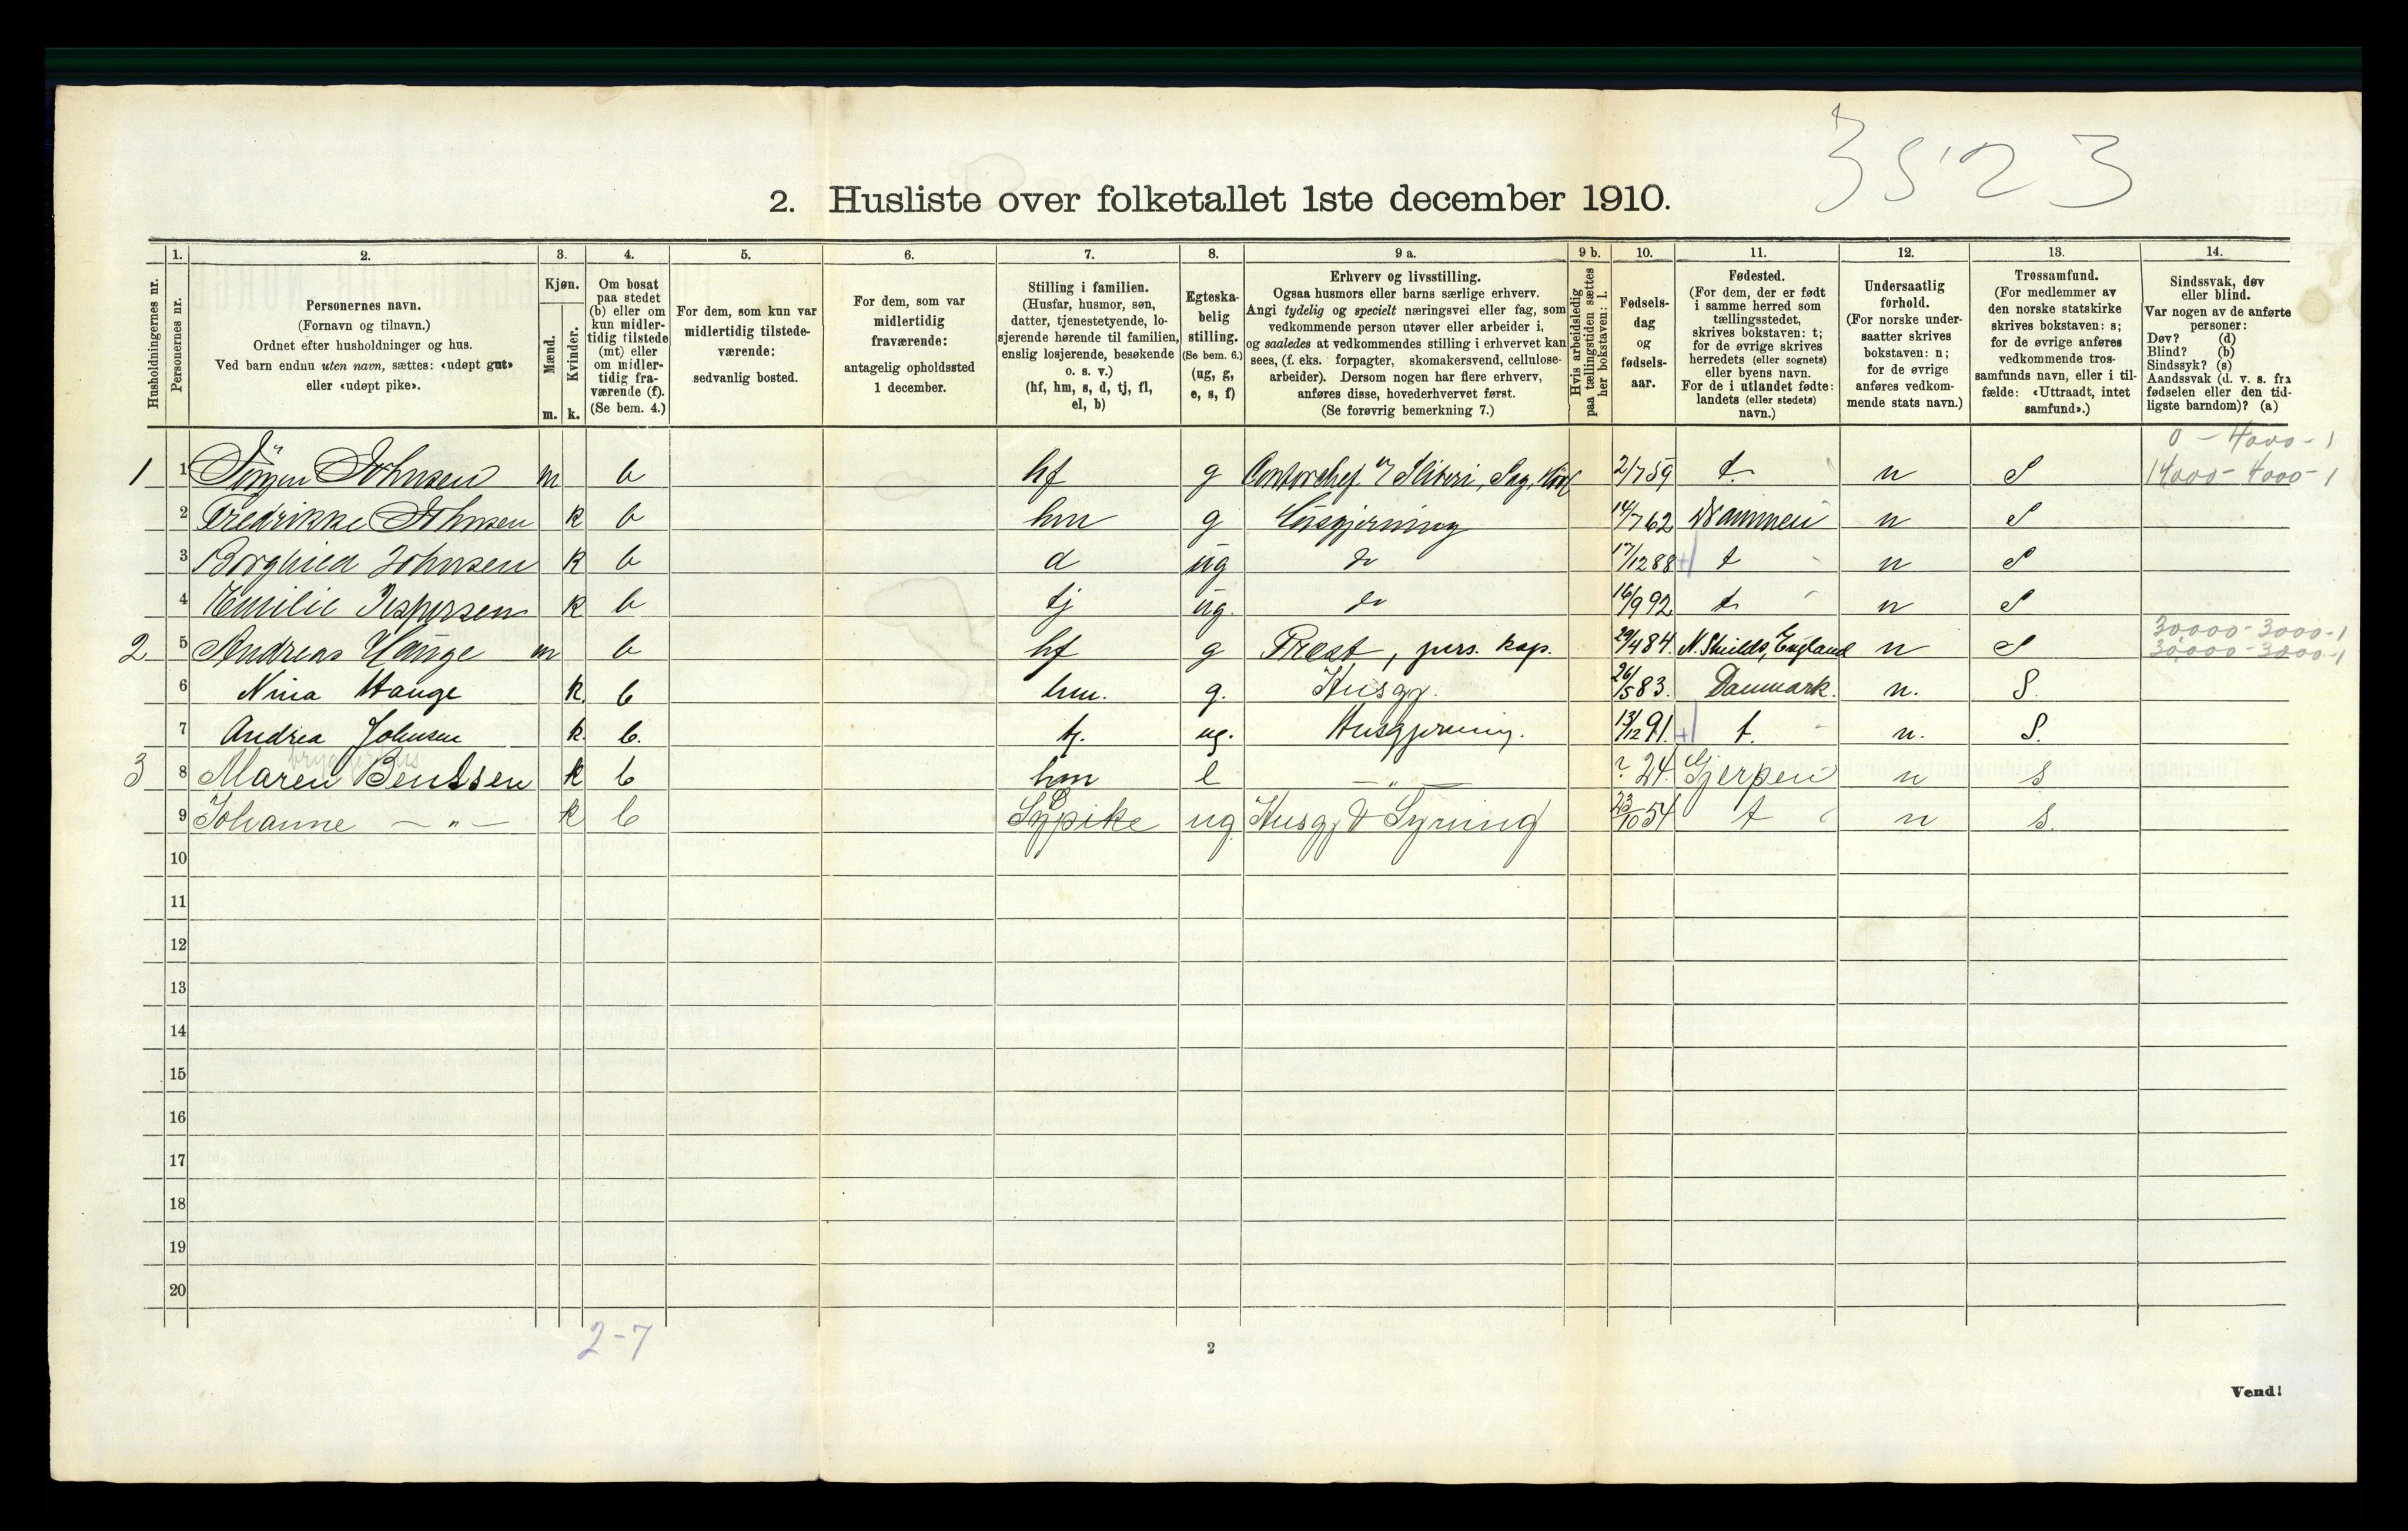 3523
2. Husliste over folketallet 1ste december 1910.
Husholdningernes nr.
1.
Personernes nr.
2.
Personernes navn.
(Fornavn og tilnavn.)
Ordnet efter husholdninger og hus.
Ved barn endnu uten navn, sættes: «udøpt gut»
eller «udøpt pike».
3.
Kjøn.
Mænd.
m.
Kvinder.
k.
4.
Om bosat
paa stedet
(b) eller om
kun midler-
tidig tilstede
(mt) eller
om midler-
tidig fra-
værende (f).
(Se bem. 4.)
5.
For dem, som kun var
midlertidig tilstede-
værende:
sedvanlig bosted.
6.
For dem, som var
midlertidig
fraværende:
antagelig opholdssted
1 december.
7.
Stilling i familien.
(Husfar, husmor, søn,
datter, tjenestetyende, lo-
sjerende hørende til familien,
enslig losjerende, besøkende
o. s. v.)
(hf, hm, s, d, tj, fl,
el, b)
8.
Egteska-
belig
stilling.
(Se bem. 6.)
(ug, g,
e, s, f)
9 a.
Erhverv og livsstilling.
Ogsaa husmors eller barns særlige erhverv.
Angi tydelig og specielt næringsvei eller fag, som
vedkommende person utøver eller arbeider i,
og saaledes at vedkommendes stilling i erhvervet kan
sees, (f. eks. forpagter, skomakersvend, cellulose-
arbeider). Dersom nogen har flere erhverv,
anføres disse, hovederhvervet først.
(Se forøvrig bemerkning 7.)
9 b.
Hvis arbeidsledig
paa tællingstiden sættes
her bokstaven: l.
10.
Fødsels-
dag
og
fødsels-
aar.
11.
Fødested.
(For dem, der er født
i samme herred som
tællingsstedet,
skrives bokstaven: t;
for de øvrige skrives
herredets (eller sognets)
eller byens navn.
For de i utlandet fødte:
landets (eller stedets)
navn.)
12.
Undersaatlig
forhold.
(For norske under-
saatter skrives
bokstaven: n;
for de øvrige
anføres vedkom-
mende stats navn.)
13.
Trossamfund.
(For medlemmer av
den norske statskirke
skrives bokstaven: s;
for de øvrige anføres
vedkommende tros-
samfunds navn, eller i til-
fælde: «Uttraadt, intet
samfund».)
14.
Sindssvak, døv
eller blind.
Var nogen av de anførte
personer:
Døv? (d)
Blind? (b)
Sindssyk? (s)
Aandssvak (d. v. s. fra
fødselen eller den tid-
ligste barndom)? (a)
0 - 4000 - 1
1 1 Jörgen Johnsen m b hf g Contorchef v/ Sliperi, Sag, 2/7 59 t. n S 14000 - 4000 - 1
2 Fredrikke Johnsen k b hm g Husgjerning 14/7 62 n S
3 Borghild Johnsen k b d ug do 17/12 88 t n S
4 Emilie Jespersen k b tj ug. do 16/9 92 t. n S
30000 - 3000 - 1
2 5 Andreas Hauge m b hf g Prest, pers. kap. 29/4 84. N. Shields, England n S 30,000 - 3000 - 1
6 Nina Hauge k. b hm. g. Husgj. 26/5 83. Danmark. n. S.
7 Andrea Johnsen k. b. tj. ug. Husgjerning. 13/12 91. t. n. S.
bryggerhus
3 8 Maren Bentsen k b hm e — " — ? 24. Gjerpen n s
9 Johanne — " — k b Sypike ug Husgj & Syning 23/10 54 t n s.
10
11
12
13
14
15
16
17
18
19
20
2-7
2
Vend!